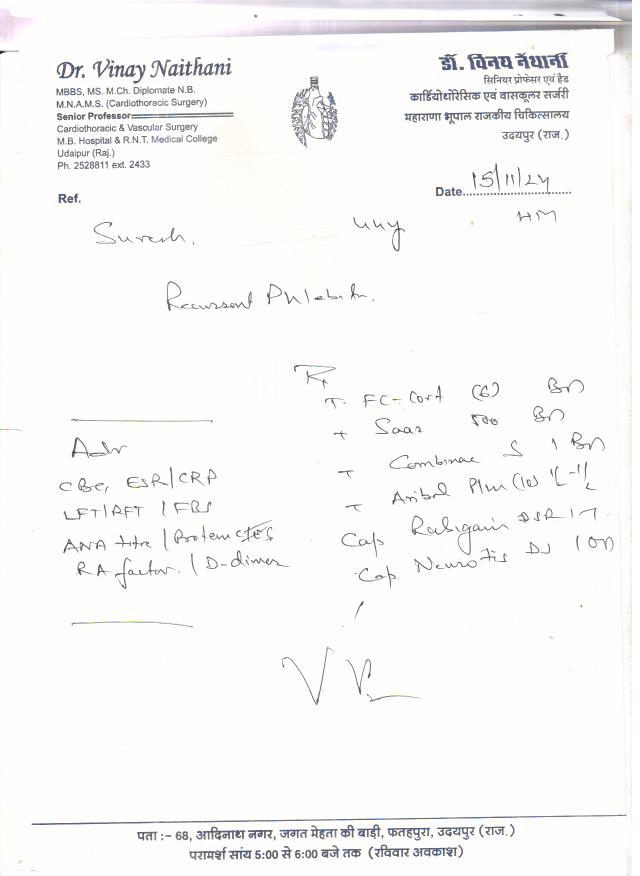 Dr. Vinay Naithani
MBBS, MS. M.Ch. Diplomate N.B.
M.N.A.M.S. (Cardiothoracic Surgery)
Senior Professor
Cardiothoracic & Vascular Surgery
M.B. Hospital & R.N.T. Medical College
Udaipur (Raj.)
Ph. 2528811 ext. 2433
डॉ. विनय नैथानी
सिनियर प्रोफेसर एवं हैड
कार्डियोथोरेसिक एवं वासकूलर सर्जरी
महाराणा भूपाल राजकीय चिकित्सालय
उदयपुर (राज.)
Ref.
Date 15/11/24
Suresh. 44y
HM
Recurrent Phlebitis.
Rx
T. FC-Cort (6) BD
T Saaz 500 BD
T Combinac S 1 BD
T Plus (10) 1/2-1/2
Cap DSR 1
Cap D 1 OD
Adv
CBC, ESR/CRP
LFT/RFT / FBS
ANA titre / Protein C &S
RA factor. / D-dimer
पता :– 68, आदिनाथ नगर, जगत मेहता की बाड़ी, फतहपुरा, उदयपुर (राज.)
परामर्श सांय 5:00 से 6:00 बजे तक (रविवार अवकाश)